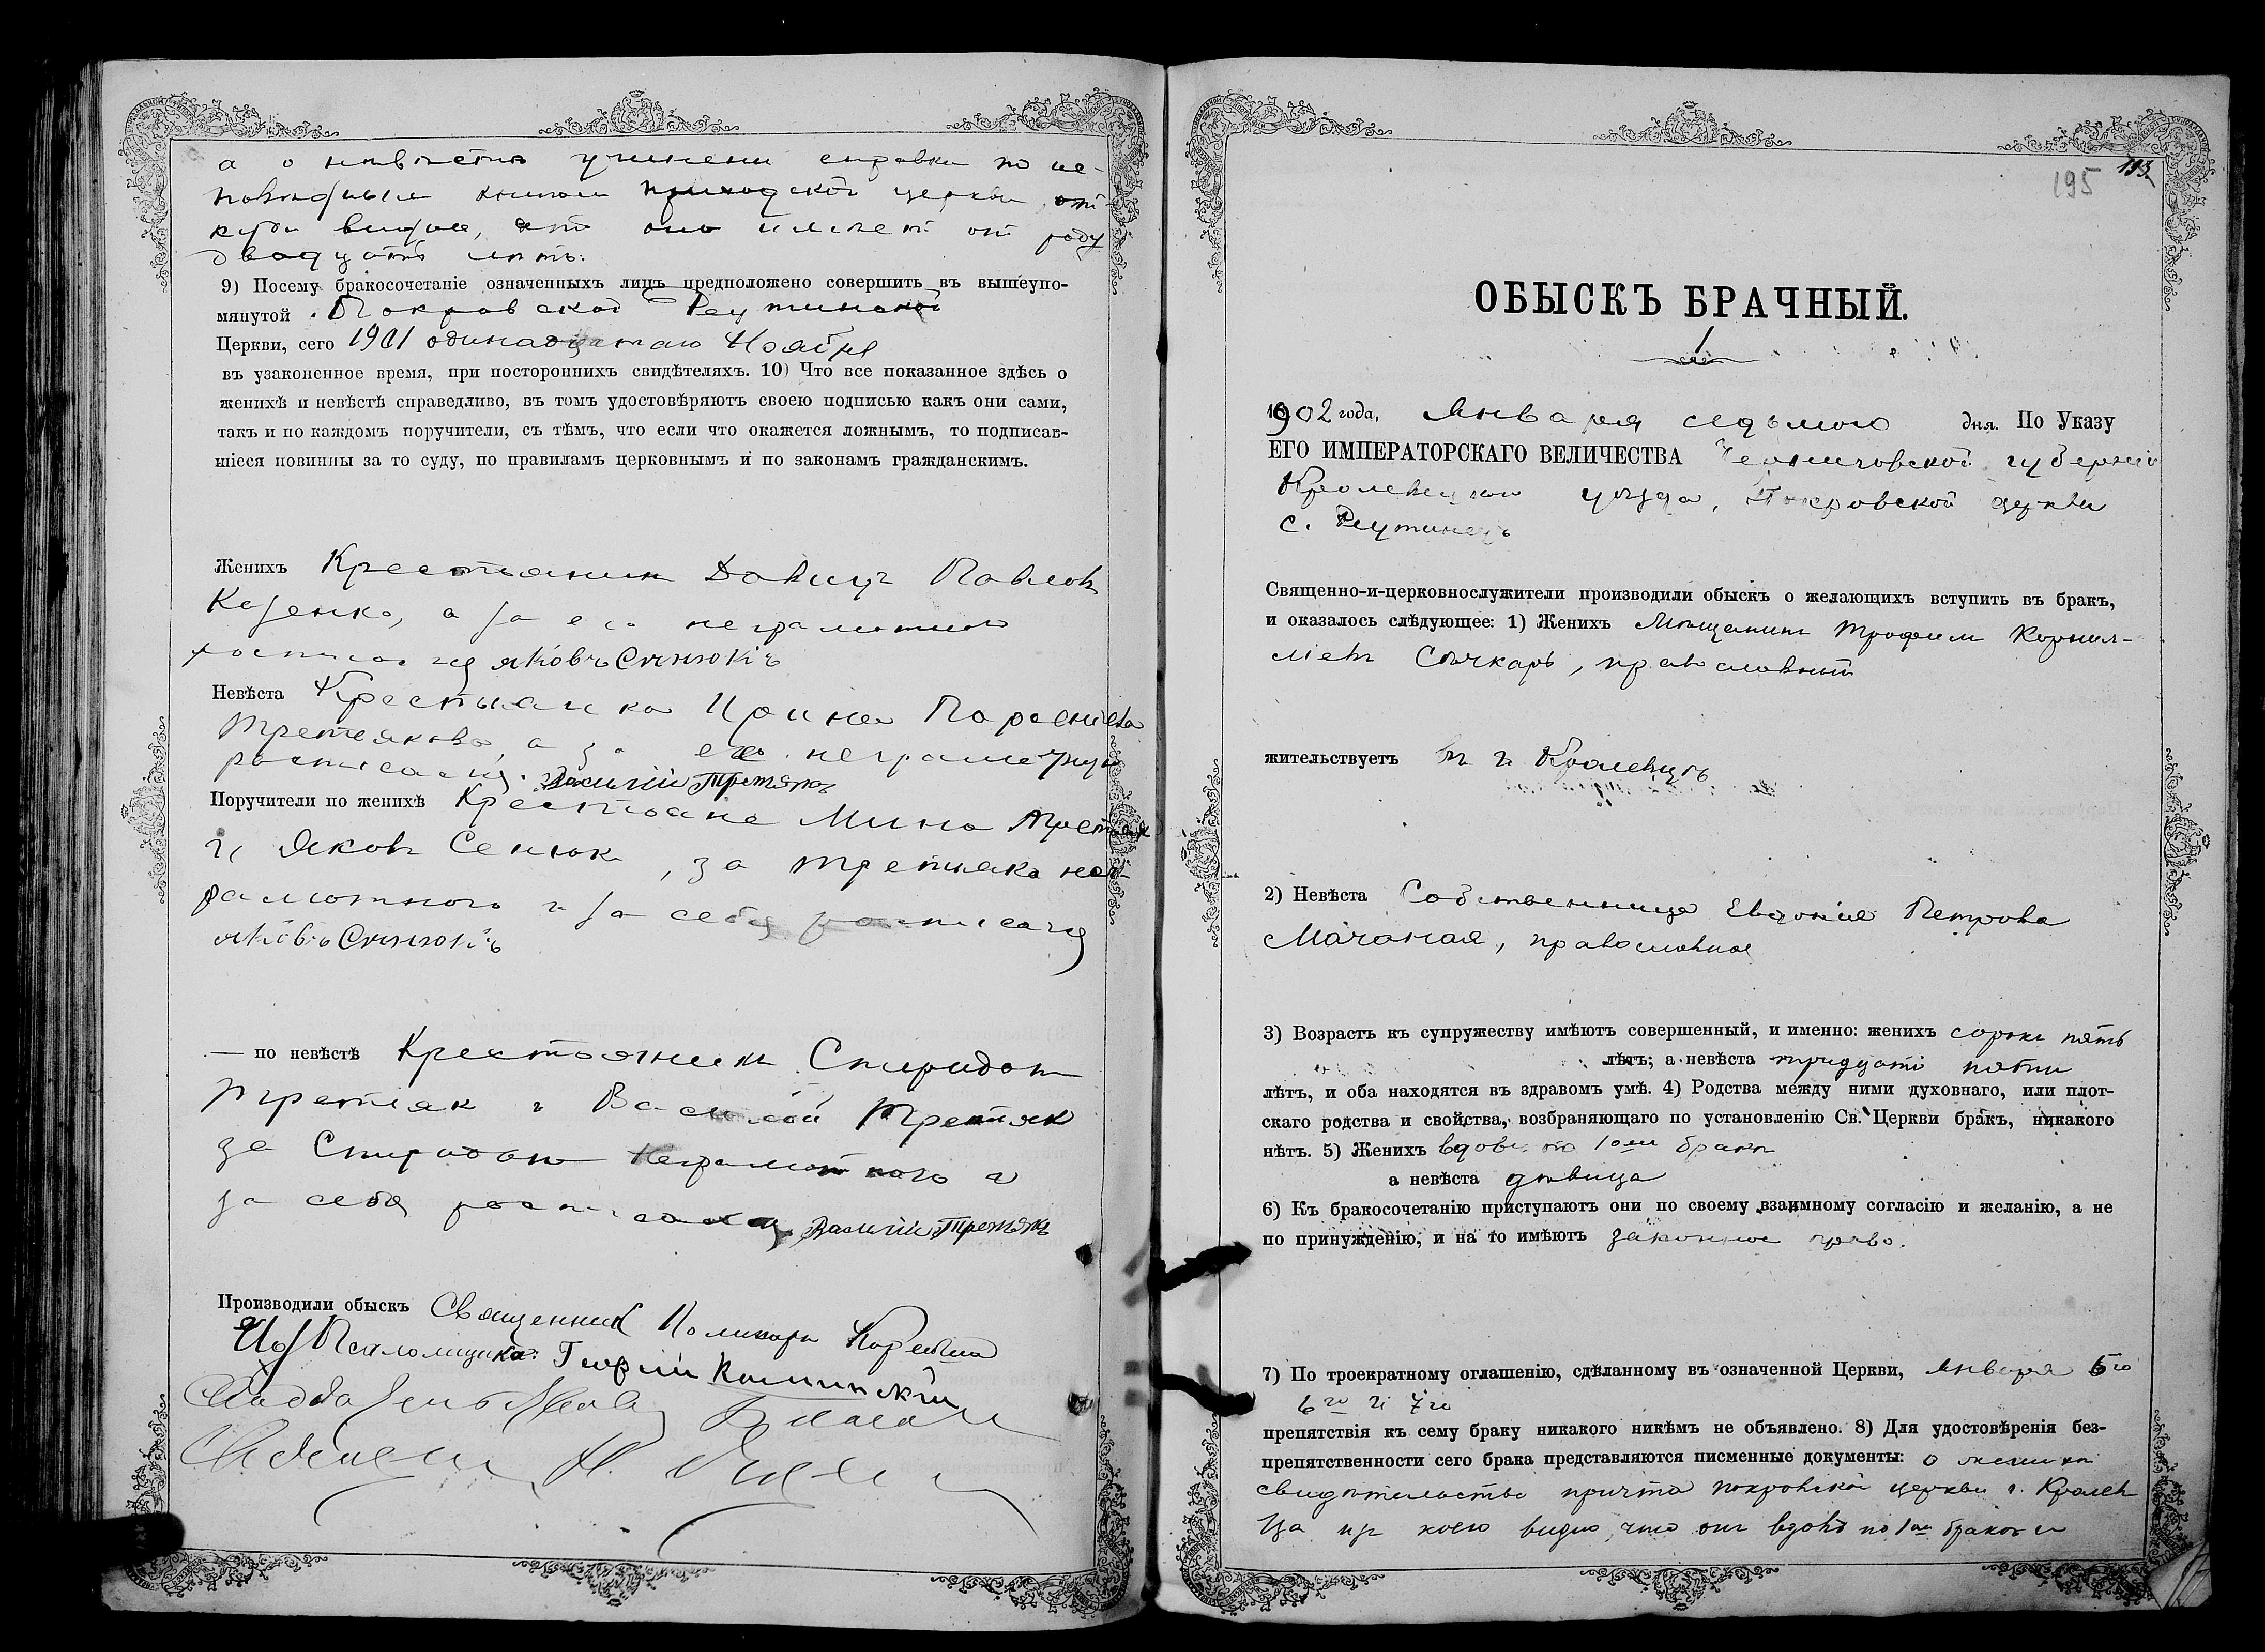 а о невѣстѣ учинены справки по ис-
повѣднымъ книгамъ приходской церкви, от-
куда видно, что она имѣетъ отъ роду
двадцать лѣтъ.
9) Посему бракосочетаніе означенныхъ лицъ предположено совершить въ вышеупо-
мянутой Покровской Реутинской
Церкви, сего 1901 одинадцатаго Ноября
въ узаконенное время, при постороннихъ свидѣтеляхъ. 10) Что все показанное здѣсь о
женихѣ и невѣстѣ справедливо, въ томъ удостовѣряютъ своею подписью какъ они сами,
такъ и по каждомъ поручители, съ тѣмъ, что если что окажется ложнымъ, то подписав-
шіеся повинны за то суду, по правиламъ церковнымъ и по законамъ гражданскимъ.
Женихъ Крестьянинъ Давидъ Павловъ
а за его неграмотного
росписался Яковъ Синюкъ
Невѣста Крестьянка Ирина
Третякова, а за ее неграмотную
росписался Василій Третякъ
Поручители по женихѣ Крестьяне Мина Третьяк
и Яковъ Сенюк, за Третьяка нег-
рамотного и за себя росписался
Яковъ Синюкъ
— по невѣстѣ Крестьянинъ Спиридонъ
Третяк и Василій Третяк
за Спиридона неграмотного и
за себя росписался Василій Третякъ
Производили обыскъ Священник
Псаломщика Георгій
195 193
ОБЫСКЪ БРАЧНЫЙ.
1
1902 года, Января седьмого дня. По Указу
ЕГО ИМПЕРАТОРСКАГО ВЕЛИЧЕСТВА Черниговской губерніи
Кролевецкаго уѣзда, Покровской церкви
с. Реутинецъ
Священно-и-церковнослужители производили обыскъ о желающихъ вступить въ бракъ,
и оказалось слѣдующее: 1) Женихъ Мѣщанинъ Трофим Корнил-
іевъ Сѣчкарь, православный
жительствуетъ въ г. Кролевцѣ
2) Невѣста Собственница Евдокія Петрова
православная
3) Возрастъ къ супружеству имѣютъ совершенный, и именно: женихъ сорокъ пять
лѣтъ; а невѣста тридцати пяти
лѣтъ, и оба находятся въ здравомъ умѣ. 4) Родства между ними духовнаго, или плот-
скаго родства и свойства, возбраняющаго по установленію Св. Церкви бракъ, никакого
нѣтъ. 5) Женихъ вдовъ по 1ом бракѣ
а невѣста дѣвица
6) Къ бракосочетанію приступаютъ они по своему взаимному согласію и желанію, а не
по принужденію, и на то имѣютъ законное право.
7) По троекратному оглашенію, сдѣланному въ означенной Церкви, Января 5го
6го и 7го
препятствія къ сему браку никакого никѣмъ не объявлено. 8) Для удостовѣренія без-
препятственности сего брака представляются писменные документы: о женихѣ
свидѣтельство причта покровской церкви г. Кролев
ца из коего видно, что онъ вдовъ по 1ом бракѣ и